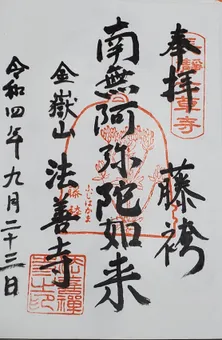 奉拝
藤袴
南無阿弥陀如来
ふじばかま
金嶽山 法善寺
令和四年九月二十三日